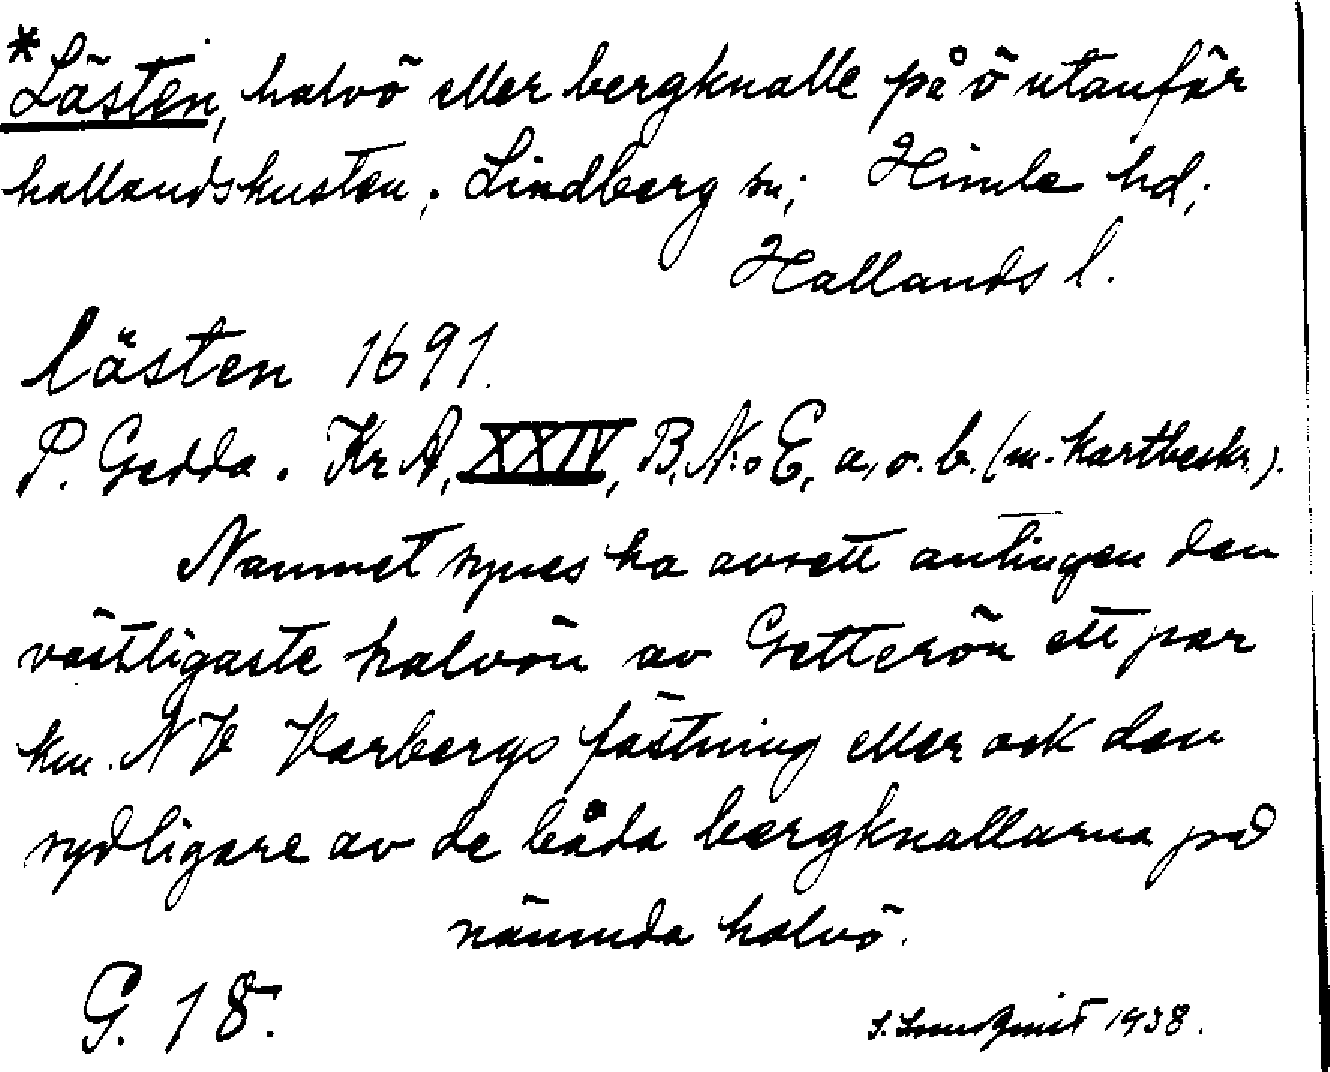 *Lästen, halvö eller bergknalle på ö utanför
hallandskusten; Lindberg sn; Himle hd;
Hallands l.
lästen 1691.
P. Gedda. Kr A, XXIV, B, N:o E, a, o. b. (m. kartbeskr.).
Namnet synes ha avsett antingen den
västligaste halvön av Getterön ett par
km. NV Varbergs fästning eller ock den
sydligare av de båda bergknallarna på
nämnda halvö.
G. 18.
1938.